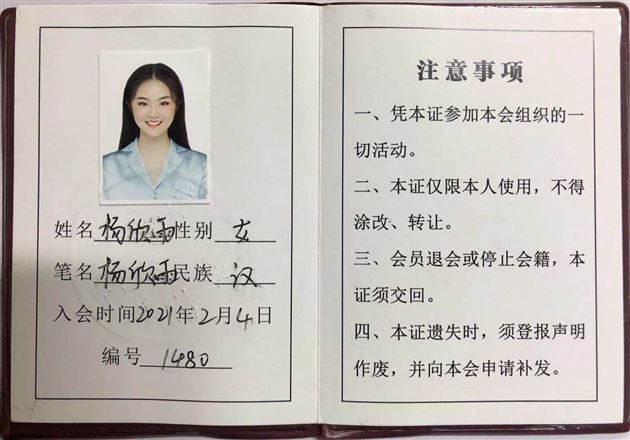 姓名 杨欣雨 性别 女
笔名 杨欣雨 民族 汉
入会时间 2021年2月4日
编号 1480
注意事项
一、凭本证参加本会组织的一
切活动。
二、本证仅限本人使用，不得
涂改、转让。
三、会员退会或停止会籍，本
证须交回。
四、本证遗失时，须登报声明
作废，并向本会申请补发。